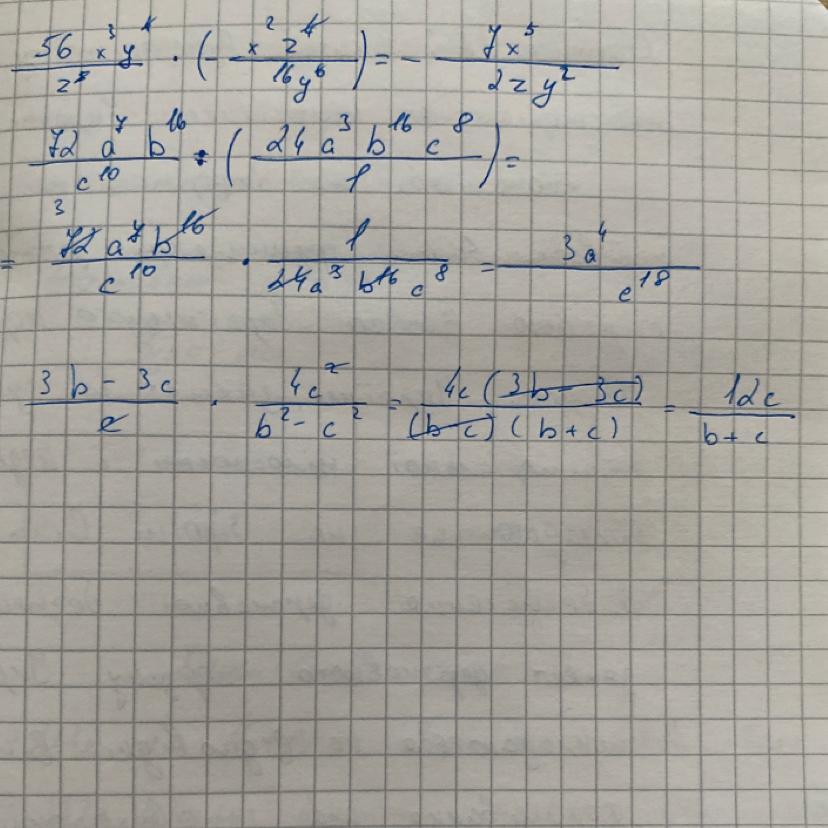 56 x³y⁴/z⁵ · (- x² z⁴/16y⁶) = - 7x⁵/2zy²
72 a⁷ b¹⁶/c¹⁰ : (24a³ b¹⁶ c⁸/1) =
= 3 72 a⁷ b¹⁶/c¹⁰ · 1/24a³ b¹⁶ c⁸ = 3a⁴/c¹⁸
3b - 3c/c · 4c²/b² - c² = 4c (3b - 3c)/(b-c)(b+c) = 12c/b+c